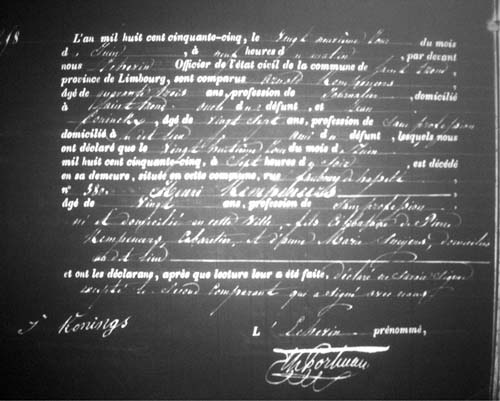 L'an mil huit cent cinquante-cinq, le vingt neuvième jour du mois
d Juin, à neuf heures d u matin, par devant
nous Echevin Officier de l'état civil de la commune de Saint Trond
province de Limbourg, sont comparus Arnold Kempeneers
âgé de Trois ans, profession de Journalier, domicilié
à Saint Trond oncle du défunt, et Jean
Konincks, âgé de vingt sept ans, profession de Sans profession
domicilié à dit lieu ami du défunt, lesquels nous
ont déclaré que le vingt huitième jour du mois de Juin
mil huit cent cinquante-cinq, à Sept heures d u Soir, est décédé
en sa demeure, située en cette commune, rue faubourg de
n° 380. Henri Kempeneers
âgé de Vingt ans, profession de Sans profession
né et domicilié en cette Ville, fils Célibataire de
Kempeneers, et d'Anne Marie domiciliés
au dit lieu
et ont les déclarans, après que lecture leur a été faite, déclaré ne savoir signer
excepté le Second Comparant qui a signé avec nous
J Konings
L' Echevin prénommé,